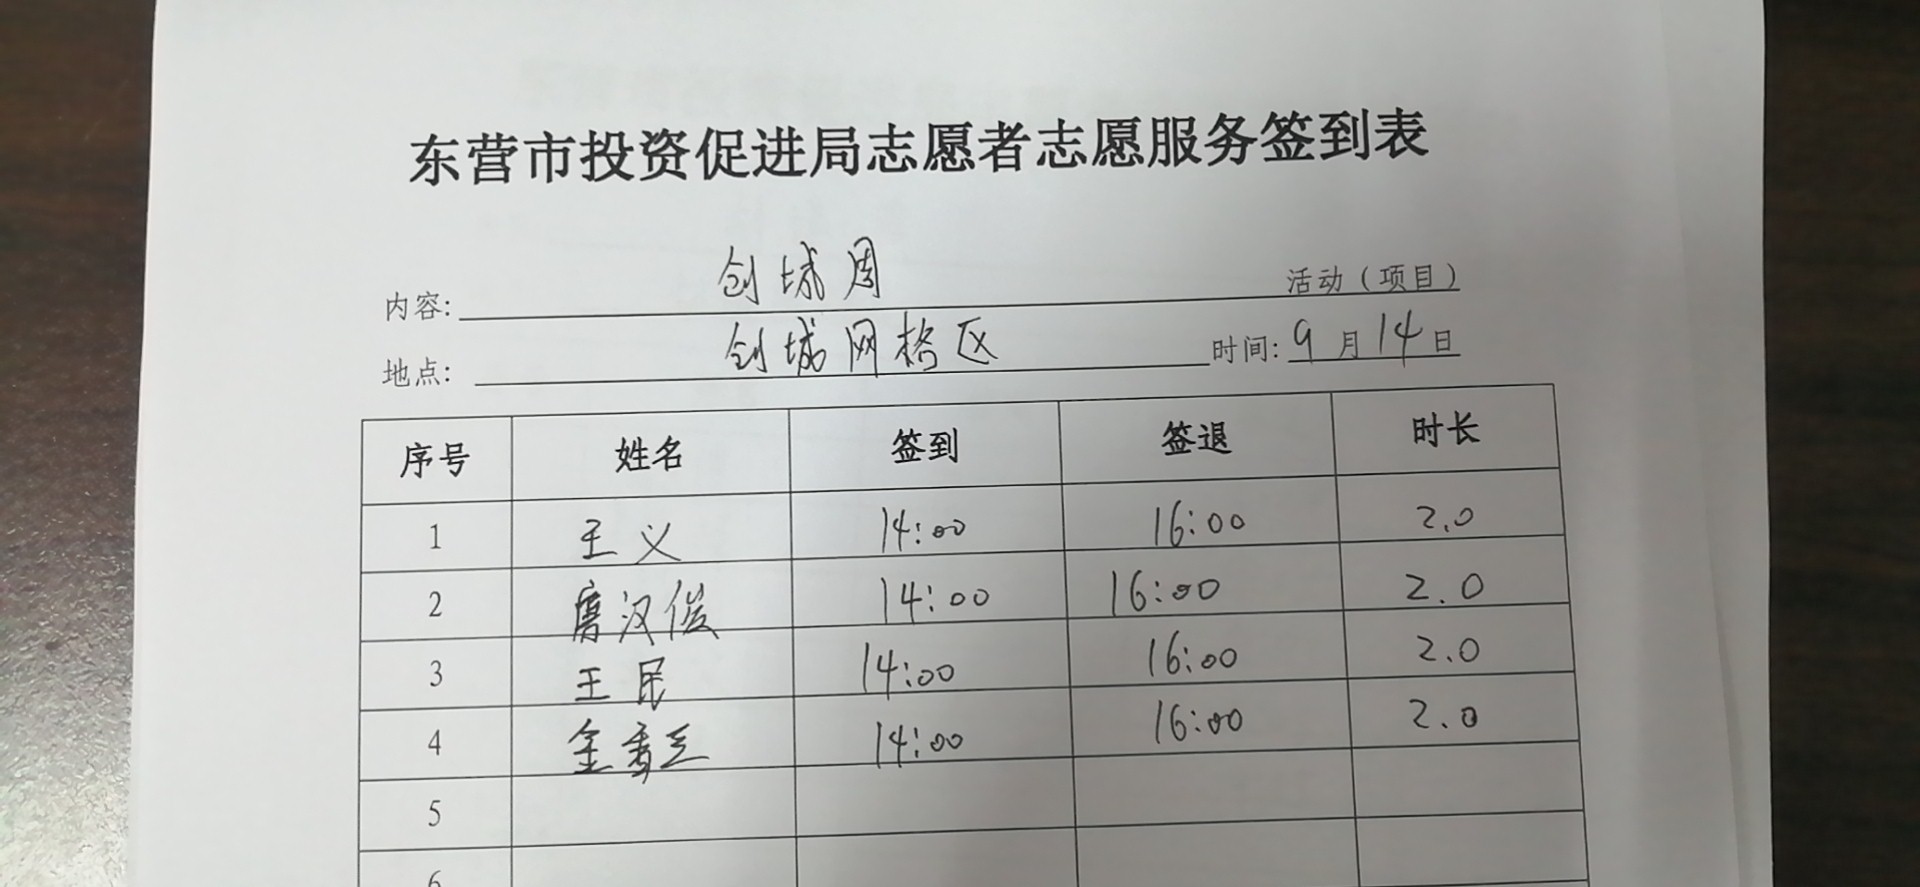 东营市投资促进局志愿者志愿服务签到表
内容: 创城周 活动（项目）
地点: 创城网格区 时间: 9月14日
序号 姓名 签到 签退 时长
1 王义 14:00 16:00 2.0
2 唐汉俊 14:00 16:00 2.0
3 王民 14:00 16:00 2.0
4 14:00 16:00 2.0
5
6